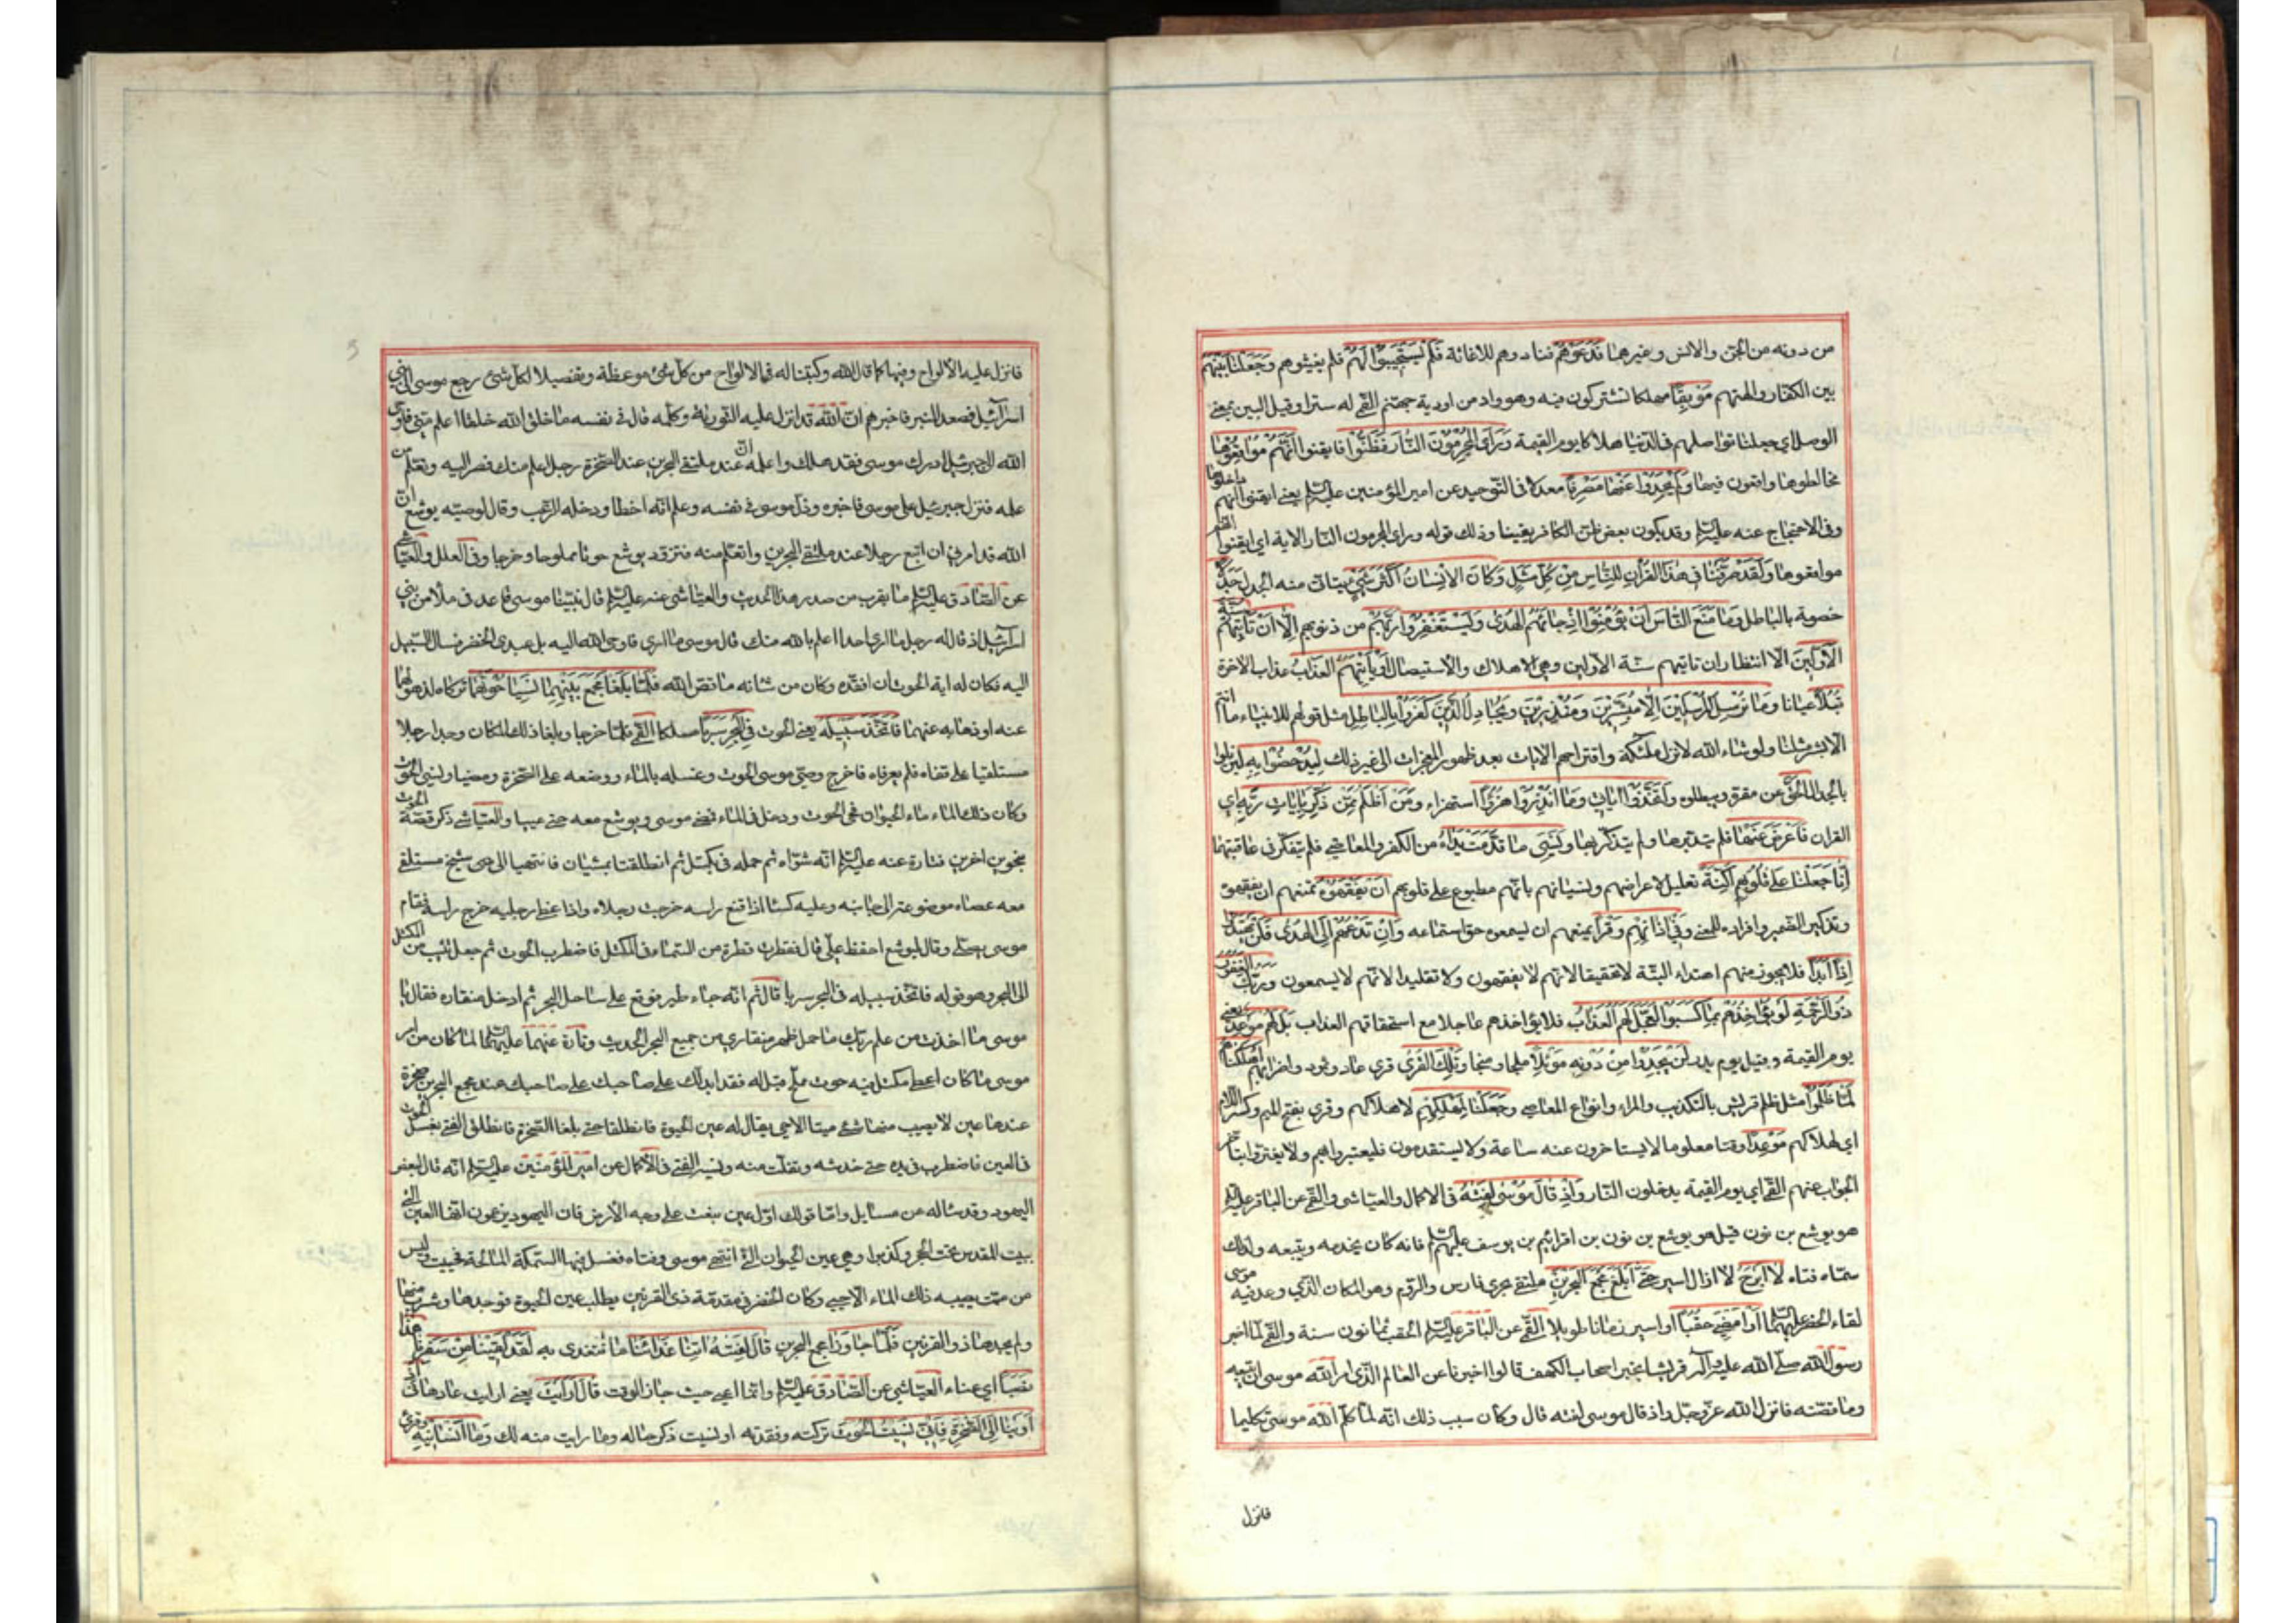 من دونه من الجن والانس وغيرهما فَدَعَوْهُمْ فنادوهم للاغاثة فَلَمْ يَسْتَجِيبُوا لَهُمْ فلم يغيثوهم وَجَعَلْنَا بَيْنَهُمْ
بين الكفار والهتهم مَوْبِقًا مهلكا يشتركون فيه وهو واد من اودية جهنم القمي له سترا وقيل البين بمعنى
الوصل اي جعلنا تواصلهم في الدنيا هلاكا يوم القيمة وَرَأَى الْمُجْرِمُونَ النَّارَ فَظَنُّوا فايقنوا أَنَّهُمْ مُوَاقِعُوهَا
مخالطوها واقعون فيها وَلَمْ يَجِدُوا عَنْهَا مَصْرِفًا معدلا في التوحيد عن امير المؤمنين عليه السلام يعني ايقنوا انهم داخلوها
وفي الاحتجاج عنه عليه السلام وقد يكون بعض ظن الكافر يقينا وذلك قوله وراى المجرمون النار الاية اي ايقنوا انهم
مواقعوها وَلَقَدْ صَرَّفْنَا فِي هَذَا الْقُرْآنِ لِلنَّاسِ مِنْ كُلِّ مَثَلٍ وَكَانَ الْإِنْسَانُ أَكْثَرَ شَيْءٍ يتاتى منه الجدل جَدَلًا
خصومة بالباطل وَمَا مَنَعَ النَّاسَ أَنْ يُؤْمِنُوا إِذْ جَاءَهُمُ الْهُدَى وَيَسْتَغْفِرُوا رَبَّهُمْ من ذنوبهم إِلَّا أَنْ تَأْتِيَهُمْ سُنَّةُ
الْأَوَّلِينَ الا انتظار ان تاتيهم سنة الاولين وهي الاهلاك والاستيصال أَوْ يَأْتِيَهُمُ الْعَذَابُ عذاب الاخرة
قُبُلًا عيانا وَمَا نُرْسِلُ الْمُرْسَلِينَ إِلَّا مُبَشِّرِينَ وَمُنْذِرِينَ وَيُجَادِلُ الَّذِينَ كَفَرُوا بِالْبَاطِلِ مثل قولهم للانبياء ما انتم
الا بشر مثلنا ولو شاء الله لانزل ملئكة واقتراحهم الايات بعد ظهور المعجزات الى غير ذلك لِيُدْحِضُوا بِهِ ليزيلوا
بالجدال الْحَقَّ عن مقره ويبطلوه وَاتَّخَذُوا آيَاتِي وَمَا أُنْذِرُوا هُزُوًا استهزاء وَمَنْ أَظْلَمُ مِمَّنْ ذُكِّرَ بِآيَاتِ رَبِّهِ اي
القران فَأَعْرَضَ عَنْهَا فلم يتدبرها ولم يتذكر بها وَنَسِيَ مَا قَدَّمَتْ يَدَاهُ من الكفر والمعاصي فلم يتفكر في عاقبتها
إِنَّا جَعَلْنَا عَلَى قُلُوبِهِمْ أَكِنَّةً تعليل لاعراضهم ونسيانهم بانهم مطبوع على قلوبهم أَنْ يَفْقَهُوهُ يمنعهم ان يفقهوه
وتذكير الضمير وافراده للمعنى وَفِي آذَانِهِمْ وَقْرًا يمنعهم ان يسمعوه حق استماعه وَإِنْ تَدْعُهُمْ إِلَى الْهُدَى فَلَنْ يَهْتَدُوا
إِذًا أَبَدًا فلا يجوز منهم اهتداء البتة لا تحقيقا لانهم لا يفقهون ولا تقليدا لانهم لا يسمعون وَرَبُّكَ الْغَفُورُ
ذُو الرَّحْمَةِ لَوْ يُؤَاخِذُهُمْ بِمَا كَسَبُوا لَعَجَّلَ لَهُمُ الْعَذَابَ فلا يؤاخذهم عاجلا مع استحقاقهم العذاب بَلْ لَهُمْ مَوْعِدٌ يعني
يوم القيمة وقيل يوم بدر لَنْ يَجِدُوا مِنْ دُونِهِ مَوْئِلًا ملجا ومنجا وَتِلْكَ الْقُرَى قرى عاد وثمود واضرابهم أَهْلَكْنَاهُمْ
لَمَّا ظَلَمُوا مثل ظلم قريش بالتكذيب والمراء وانواع المعاصي وَجَعَلْنَا لِمَهْلِكِهِمْ لاهلاكهم وقرئ بفتح الميم وكسر اللام
اي لهلاكهم مَوْعِدًا وقتا معلوما لا يستاخرون عنه ساعة ولا يستقدمون فليعتبروا بهم ولا يغتروا بتاخر
الجواب عنهم القمي اي يوم القيمة يدخلون النار وَإِذْ قَالَ مُوسَى لِفَتَاهُ في الاكمال والعياشي والقمي عن الباقر عليه السلام
هو يوشع بن نون قيل هو يوشع بن نون بن افرائيم بن يوسف عليهم السلام فانه كان يخدمه ويتبعه ولذلك
سماه فتاه لَا أَبْرَحُ لا ازال اسير حَتَّى أَبْلُغَ مَجْمَعَ الْبَحْرَيْنِ ملتقى بحري فارس والروم وهو المكان الذي وعد فيه موسى
لقاء الخضر عليهما السلام أَوْ أَمْضِيَ حُقُبًا او اسير زمانا طويلا القمي عن الباقر عليه السلام الحقب ثمانون سنة والقمي لما اخبر
رسول الله صلى الله عليه وآله قريشا بخبر اصحاب الكهف قالوا اخبرنا عن العالم الذي امر الله موسى ان يتبعه
وما قصته فانزل الله عز وجل واذ قال موسى لفته قال وكان سبب ذلك انه لما كلم الله موسى تكليما
فانزل
فانزل عليه الالواح وفيها كما قال الله وكتبنا له في الالواح من كل شئ موعظة وتفصيلا لكل شئ رجع موسى الى بني
اسرائيل فصعد المنبر فاخبرهم ان الله قد انزل عليه التورية وكلمه قال في نفسه ما خلق الله خلقا اعلم مني فاوحى
الله الى جبرئيل ادرك موسى فقد هلك واعلمه ان عند ملتقى البحرين عند الصخرة رجل اعلم منك فصر اليه وتعلم من
علمه فنزل جبرئيل على موسى فاخبره وذل موسى في نفسه وعلم انه اخطا ودخله الرعب وقال لوصيه يوشع ان
الله قد امرني ان اتبع رجلا عند ملتقى البحرين واتعلم منه فتزود يوشع حوتا مملوحا وخرجا وفي العلل والعياشي
عن الصادق عليه السلام ما يقرب من صدر هذا الحديث والعياشي عنه عليه السلام قال بينا موسى قاعد في ملأ من بني
اسرائيل اذ قال له رجل ما ارى احدا اعلم بالله منك قال موسى ما ارى فاوحى الله اليه بل عبدي الخضر فسال السبيل
اليه فكان له اية الحوت ان افتقده وكان من شانه ما قص الله فَلَمَّا بَلَغَا مَجْمَعَ بَيْنِهِمَا نَسِيَا حُوتَهُمَا تركاه لذهولهما
عنه او ذهابه عنهما فَاتَّخَذَ سَبِيلَهُ يعني الحوت فِي الْبَحْرِ سَرَبًا مسلكا القمي فلما خرجا وبلغا ذلك المكان وجدا رجلا
مستلقيا على قفاه فلم يعرفاه فاخرج وصي موسى الحوت وغسله بالماء ووضعه على الصخرة ومضيا ونسي الحوت
وكان ذلك الماء ماء الحيوان فحي الحوت ودخل في الماء فمضى موسى ويوشع معه حتى عييا والعياشي ذكر قصة الحوت
بنحوين اخرين فتارة عنه عليه السلام انه شواه ثم حمله في مكتل ثم انطلقا يمشيان فانتهيا الى شيخ مستلقى
معه عصاه موضوعة الى جانبه وعليه كسا اذا قنع راسه خرجت رجلاه واذا غطا رجليه خرج راسه فقام
موسى يصلي وقال ليوشع احفظ علي قال فقطرت قطرة من السماء في المكتل فاضطرب الحوت ثم جعل يثب من المكتل
الى البحر وهو قوله فاتخذ سبيله في البحر سربا قال ثم انه جاء طير فوقع على ساحل البحر ثم ادخل منقاره فقال يا
موسى ما اخذت من علم ربك ما حمل ظهر منقاري من جميع البحر الحديث وتارة عنهما عليهما السلام لما كان من امر
موسى ما كان اعطي مكتل فيه حوت مملح قيل له فقد ايدلك على صاحبك عند مجمع البحرين صخرة
عندها عين لا يصيب منها شئ ميتا الا حيي يقال له عين الحيوة فانطلقا حتى بلغا الصخرة فانطلق الفتى يغسل الحوت
في العين فاضطرب في يده حتى خدشه وتفلت منه ونسيه الفتى في الاكمال عن امير المؤمنين عليه السلام انه قال لبعض
اليهود وقد ساله عن مسايل واما قولك اول عين نبعت على وجه الارض فان اليهود يزعمون انها العين التي
ببيت المقدس تحت الحجر وكذبوا وهي عين الحيوان التي انتهى موسى وفتاه فغسل فيها السمكة المالحة فحييت وليس
من ميت يصيبه ذلك الماء الا حيي وكان الخضر في مقدمة ذي القرنين يطلب عين الحيوة فوجدها وشرب منها
ولم يجدها ذو القرنين فَلَمَّا جَاوَزَا مجمع البحرين قَالَ لِفَتَاهُ آتِنَا غَدَاءَنَا ما نتغدى به لَقَدْ لَقِينَا مِنْ سَفَرِنَا هَذَا
نَصَبًا اي عناء العياشي عن الصادق عليه السلام وانما اعيى حيث جاز الوقت قَالَ أَرَأَيْتَ يعني ارايت ما دهاني إِذْ
أَوَيْنَا إِلَى الصَّخْرَةِ فَإِنِّي نَسِيتُ الْحُوتَ تركته وفقدته او نسيت ذكر حاله وما رايت منه لك وَمَا أَنْسَانِيهُ وقرئ